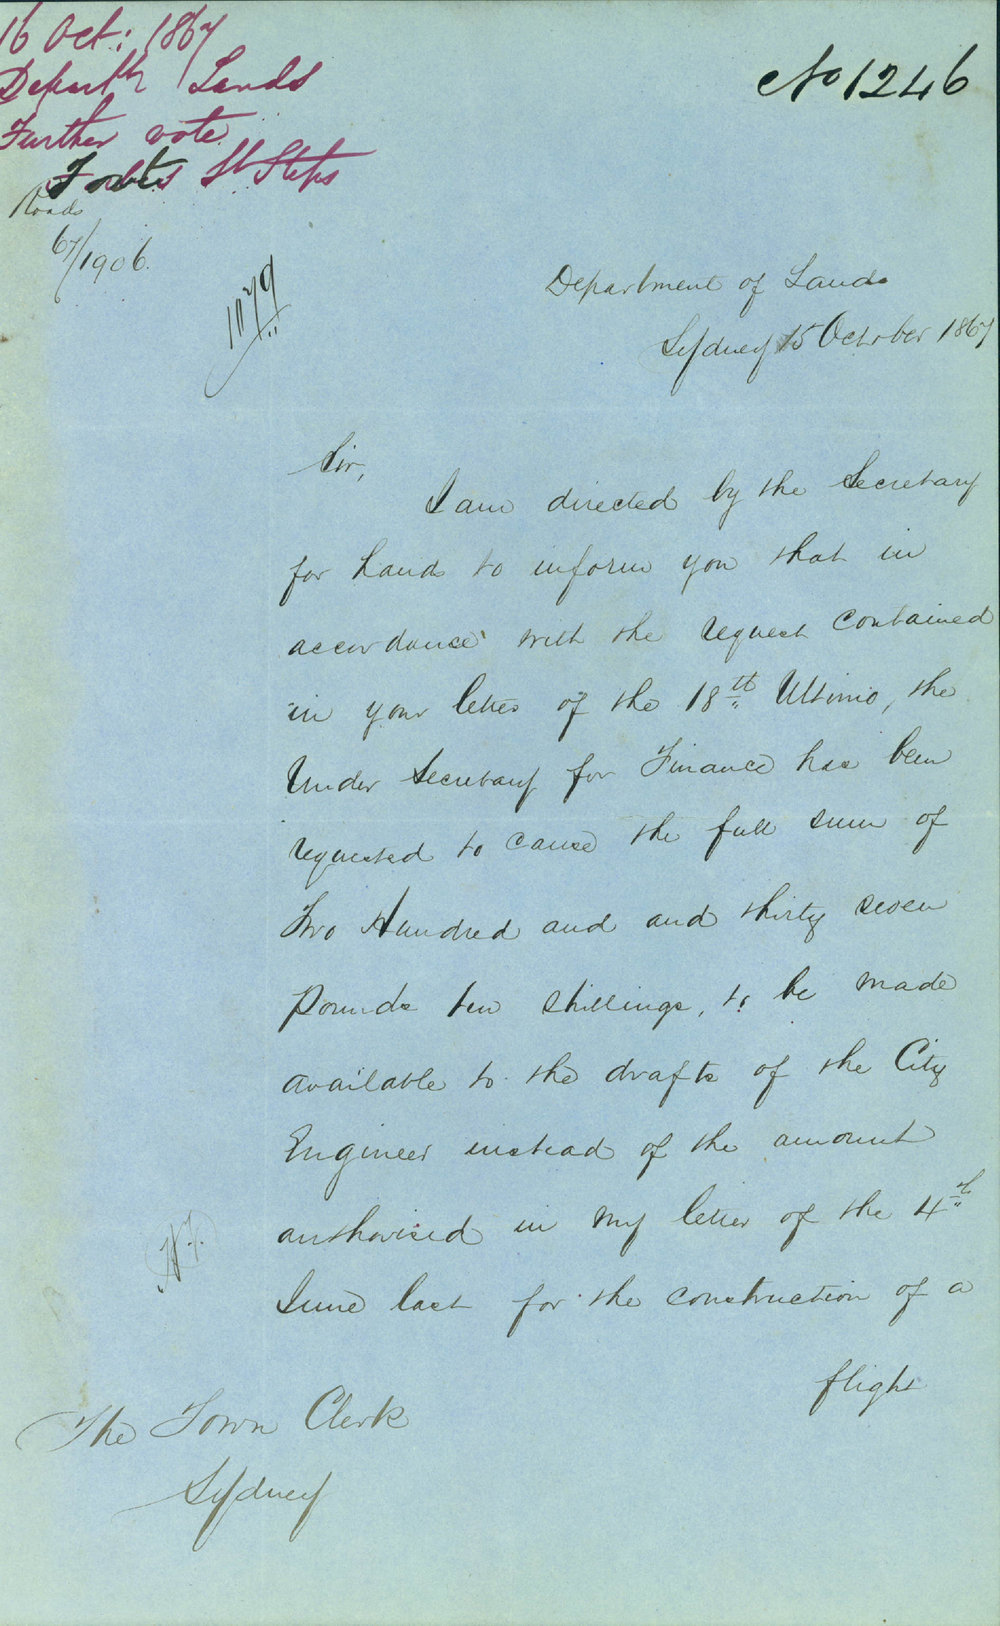 16 Oct: 1867
Departth Lands
Further vote
Forbes St Steps
Roads
67/1906.
No 1246
1079
Department of Lands
Sydney 15 October 1867
Sir,
I am directed by the Secretary
for Lands to inform you that in
accordance with the request contained
in your letter of the 18th Ultimo, the
Under Secretary for Finance has been
requested to cause the full sum of
Two Hundred and and thirty seven
Pounds ten shillings, to be made
available to the drafts of the City
Engineer instead of the amount
authorised in my letter of the 4th
June last for the construction of a
flight
The Town Clerk
Sydney